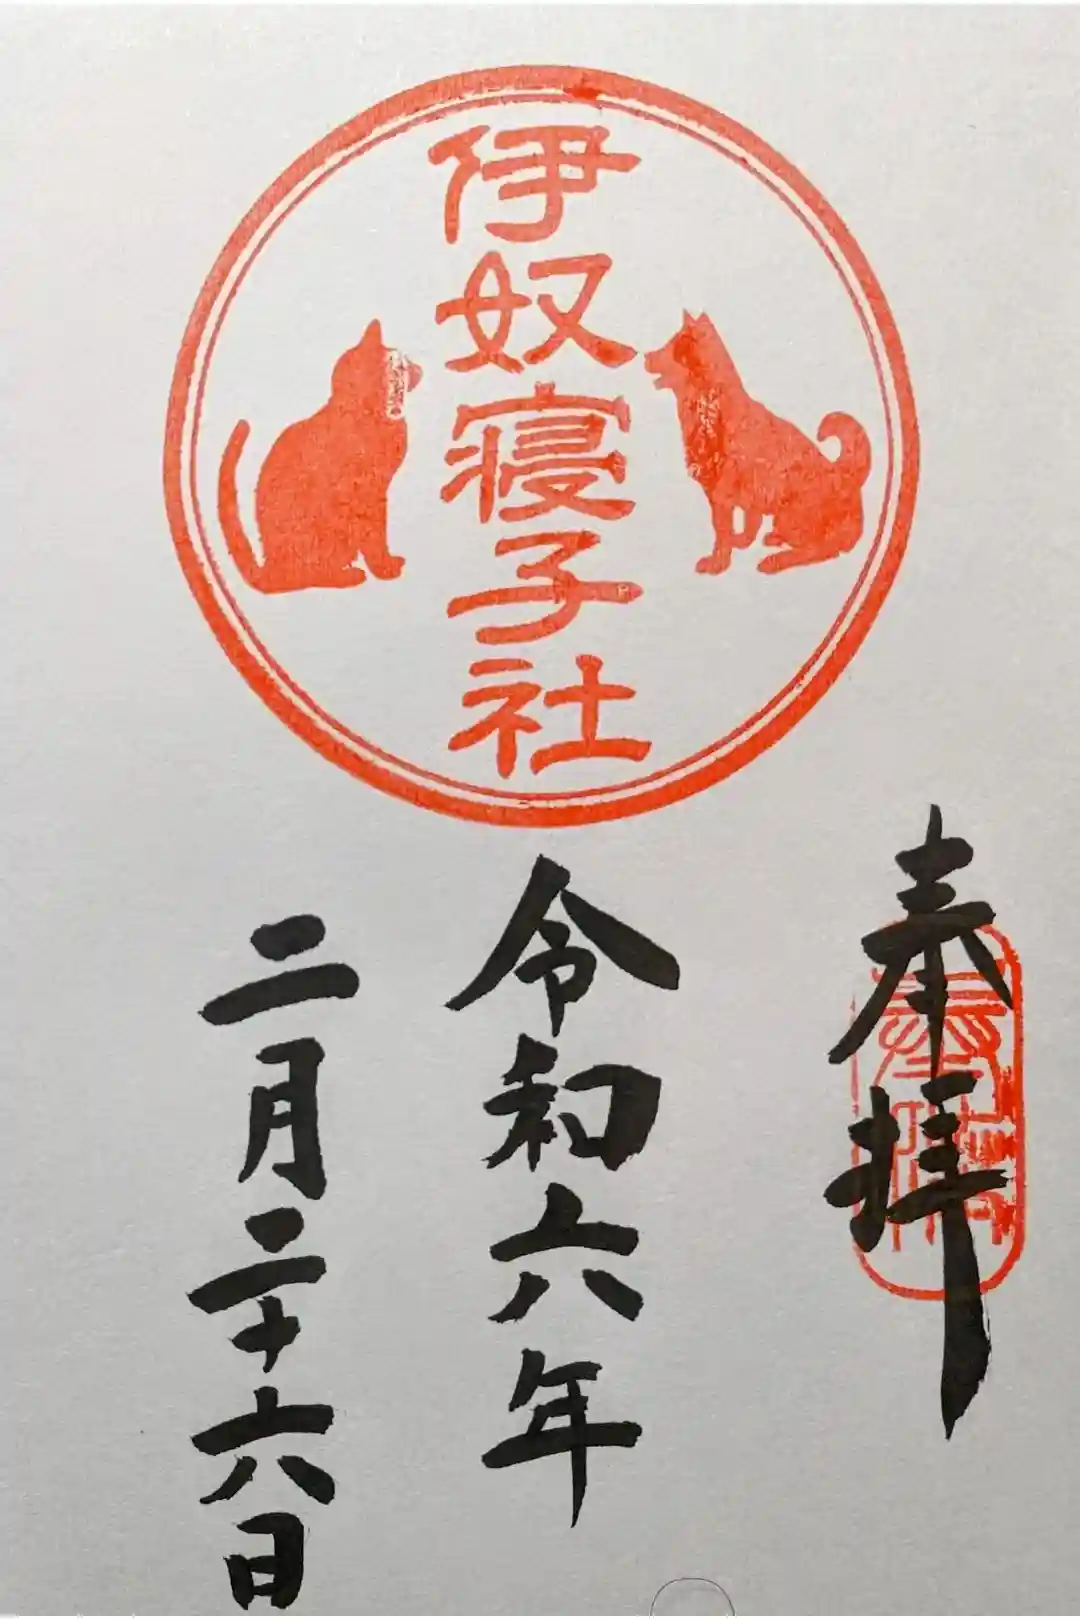 伊奴寝子社
奉拝
令和六年
二月二十六日